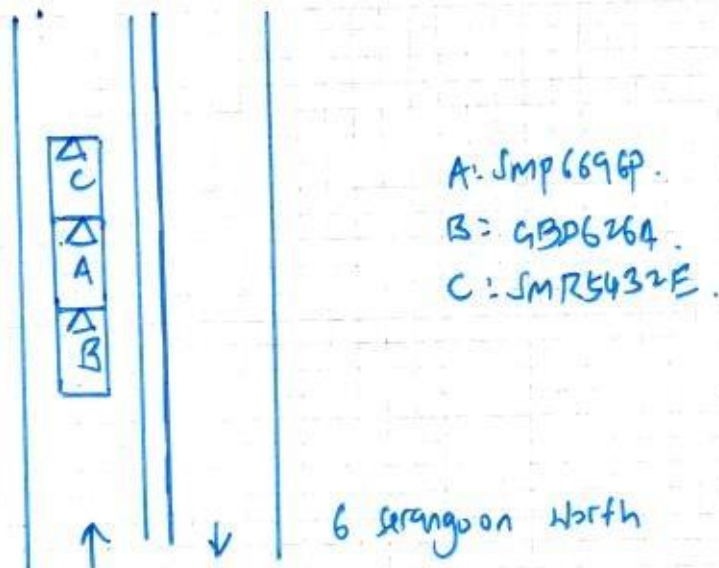 C
A
B
A: SMP6696P.
B: GBD626A.
C: SMR5432E.
6 Serangoon North